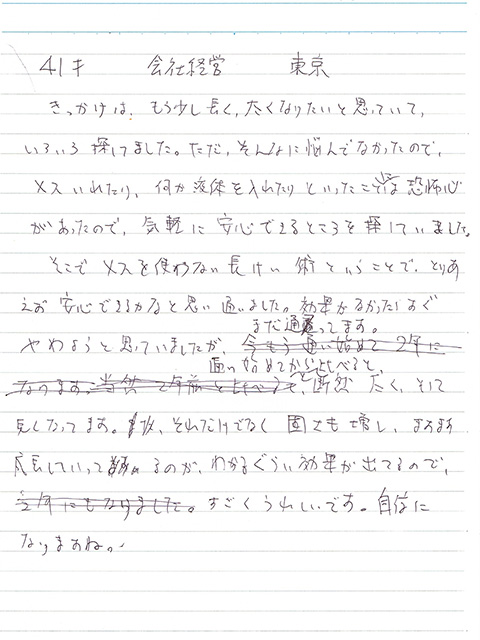 41才 会社経営 東京
きっかけは、もう少し長く、太くなりたいと思っていて、
いろいろ探してました。ただ、そんなに悩んでなかったので、
メスいれたり、何か液体を入れたりといったことでは恐怖心
があったので、気軽に安心できるところを探していました。
そこでメスを使わない長けい術ということで、とりあ
えず安心できるかなと思い通いました。効果がなかったらすぐ
まだ通ってます。
やめようと思っていましたが、今もう通い始めて2年に
通い始めてから比べると、
なります。当然2年前と比べると、断然太く、そして
長くなってます。それだけでなく固さも増し、ますます
成長していってるのが、わかるぐらい効果が出てるので、
今年にもなりました。すごくうれしいです。自信に
なりますね。